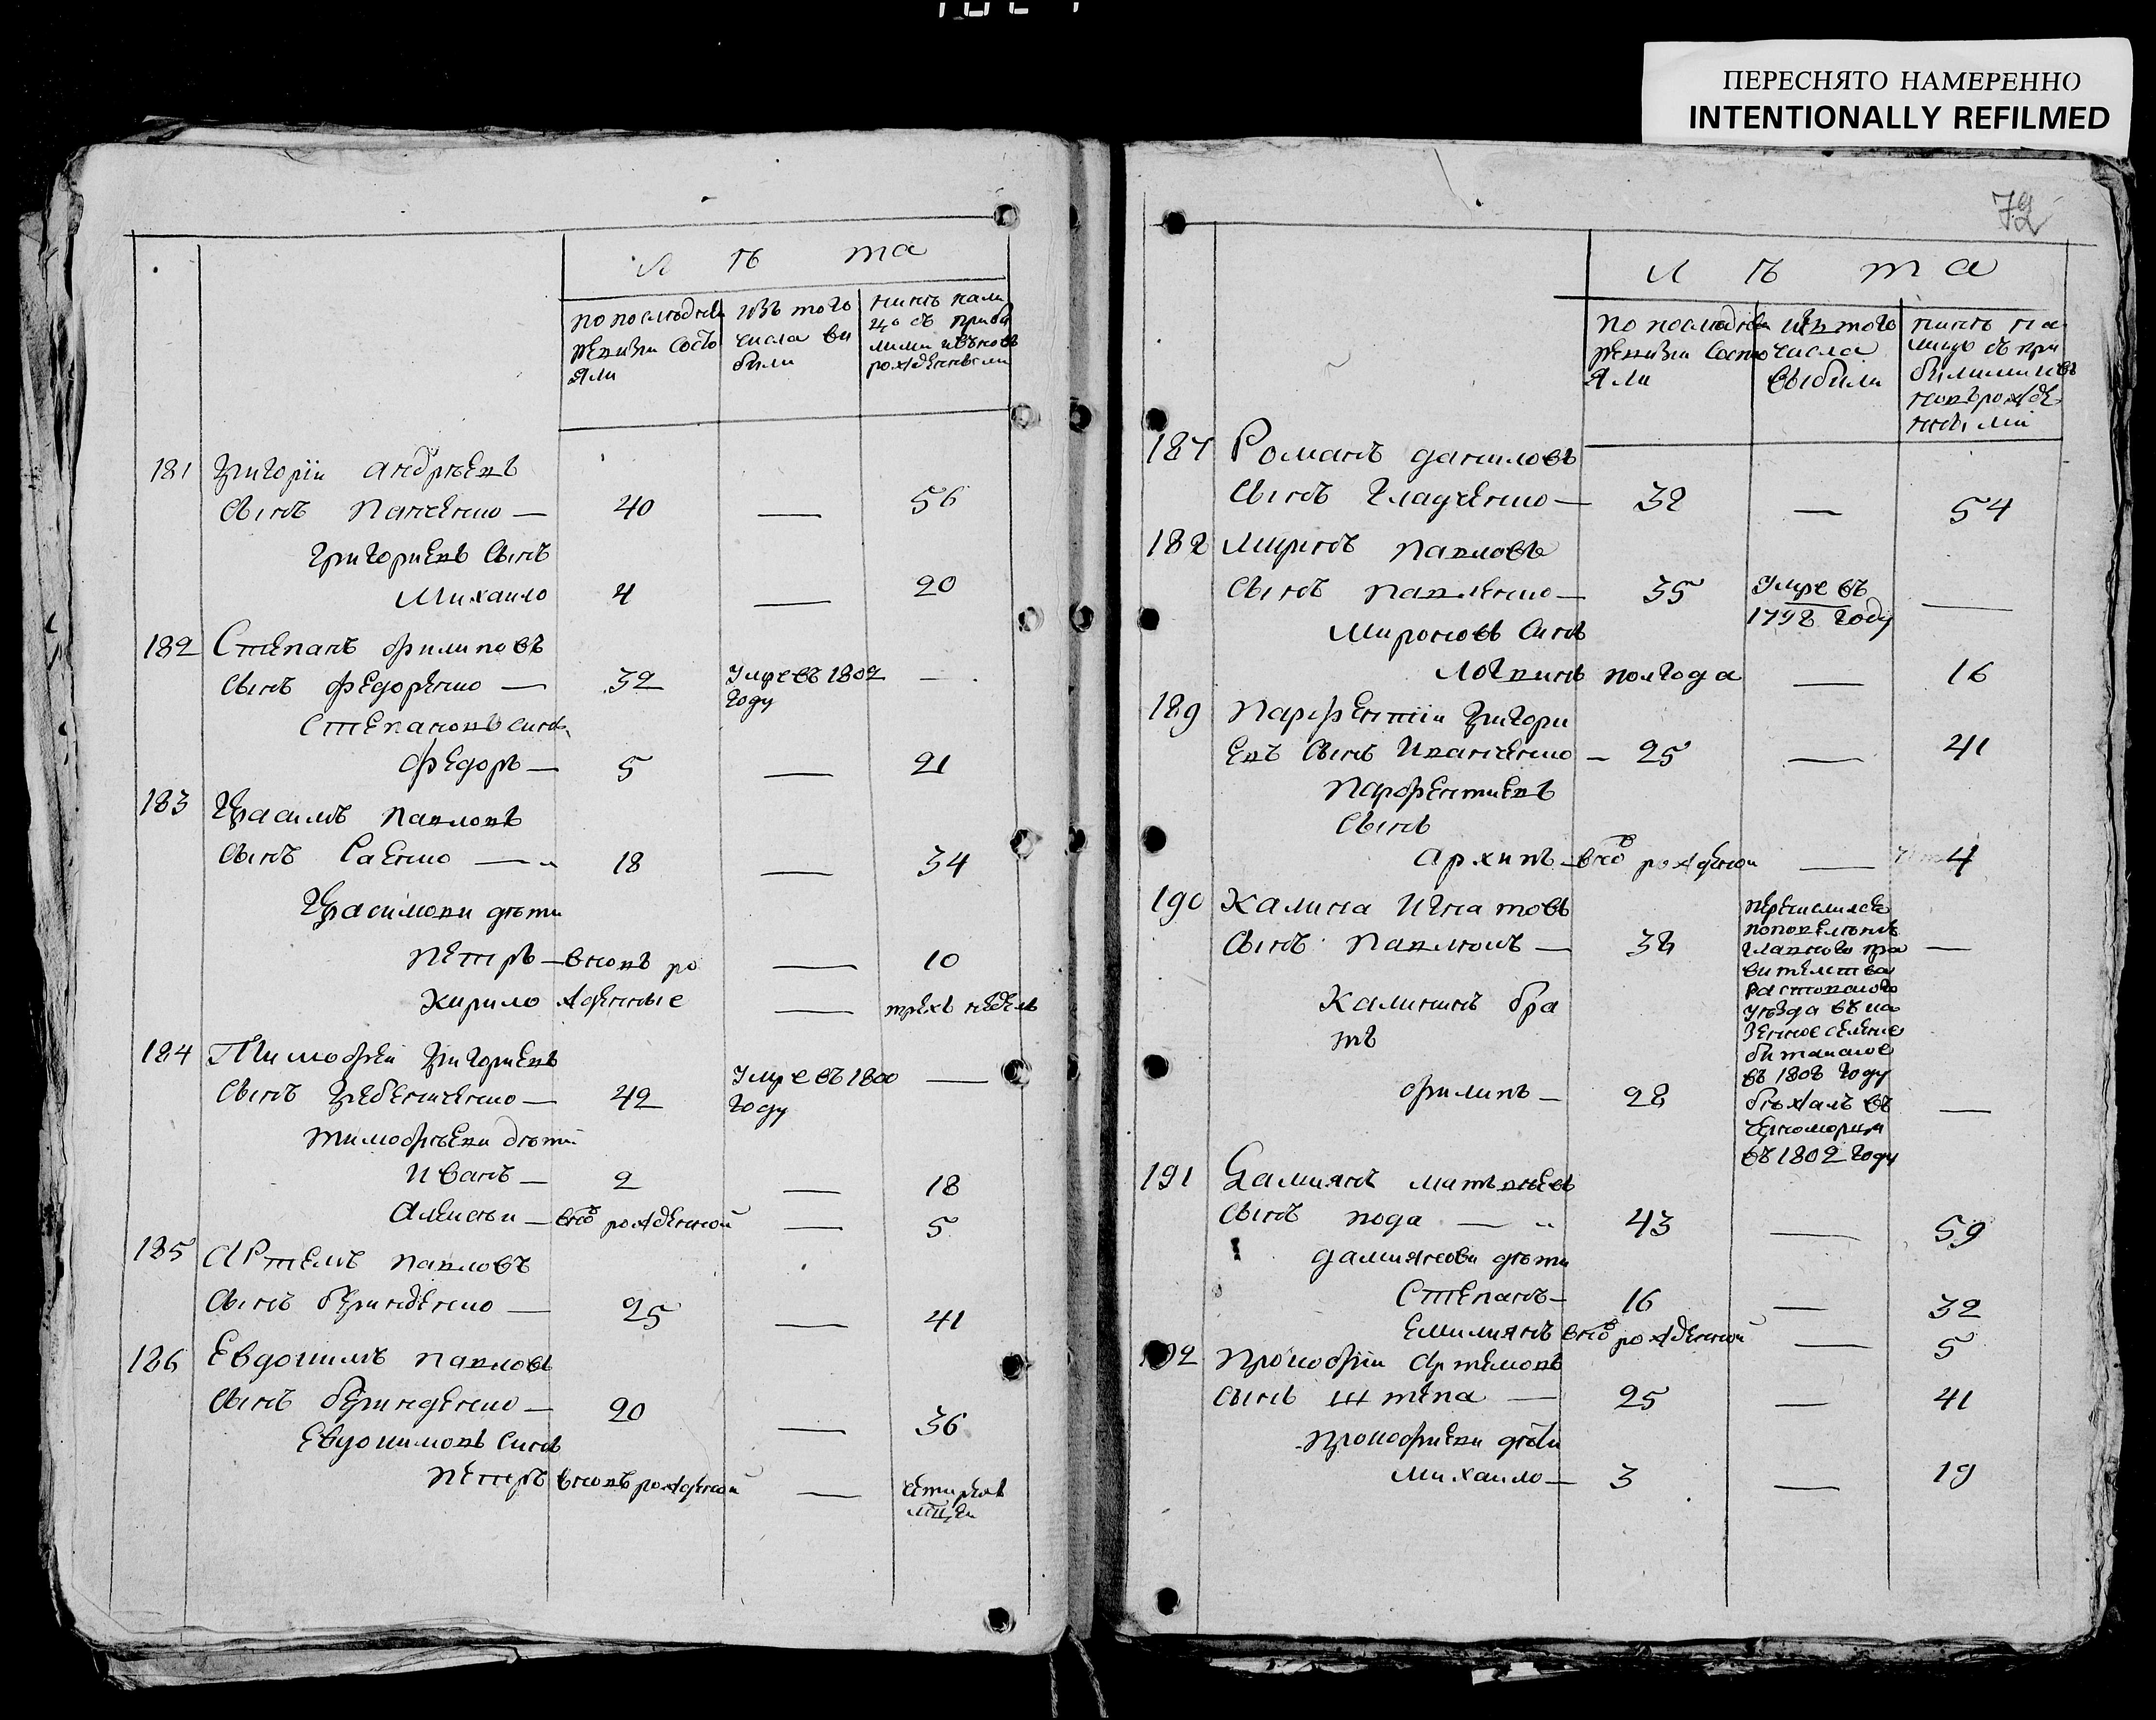 ПЕРЕСНЯТО НАМЕРЕННО
INTENTIONALLY REFILMED
72
Лѣта
по последней
ревизіи состо
яли
изъ того
числа вы
были
ныне нали
цо съ прибы
лими и вновь
рожденными
181 Григоріи Андрѣевъ
сынъ Панченко — 40 — 56
Григориевъ сынъ
Михаило 4 — 20
182 Степанъ Филиповъ
сынъ Федоренко — 32 Умре въ 1802 —
году
Степановъ синъ
Федоръ — 5 — 21
183 Герасимъ Павловъ
сынъ Саенко — 18 — 34
Герасимови дѣти
Петръ — вновь ро — 10
Кирило жденные — трехъ недель
184 Тимофеи Григориевъ
сынъ Гребенниченко — 42 Умре въ 1800 —
году
Тимофѣеви дѣти
Иванъ — 2 — 18
Алексѣи — внов рожденной — 5
185 Артемъ Павловъ
сынъ Беринденко — 25 — 41
186 Евдокимъ Павловъ
сынъ Беринденко — 20 — 36
Евдокимовъ синъ
Петръ вновь рожденой — четирохъ
мцеи
Лѣта
по последней
ревизіи состо
яли
изъ того
числа
выбили
ныне на
лицо съ при
былими и въ
новь рожде
нными
187 Романъ Даниловъ
сынъ Гладченко — 38 — 54
188 Миронъ Павловъ
сынъ Павленко — 35 Умре въ —
1798 году
Мироновъ синъ
Логвинъ полгода — 16
189 Парфентіи Григори
евъ сынъ Иванченко — 25 — 41
Парфентиевъ
сынъ
Архипъ — внов рожденой — 4
190 Калина Игнатовъ
сынъ Павлюкъ — 38 —
перечислился
по повелению
главного пра
вителства
Ростовского
уезда въ ка
зенное селение
въ 1808 году
Калининъ бра
тъ
Филипъ — 28 —
бѣжалъ въ
Черноморию
въ 1802 году
191 Дамиянъ Матвѣевъ
сынъ — 43 — 59
Дамиянови дѣти
Степанъ — 16 — 32
Емилиянъ внов рожденной — 5
192 Прокофіи Артемовъ
сынъ Штепа — 25 — 41
Прокофиеви дѣти
Михаило — 3 — 19